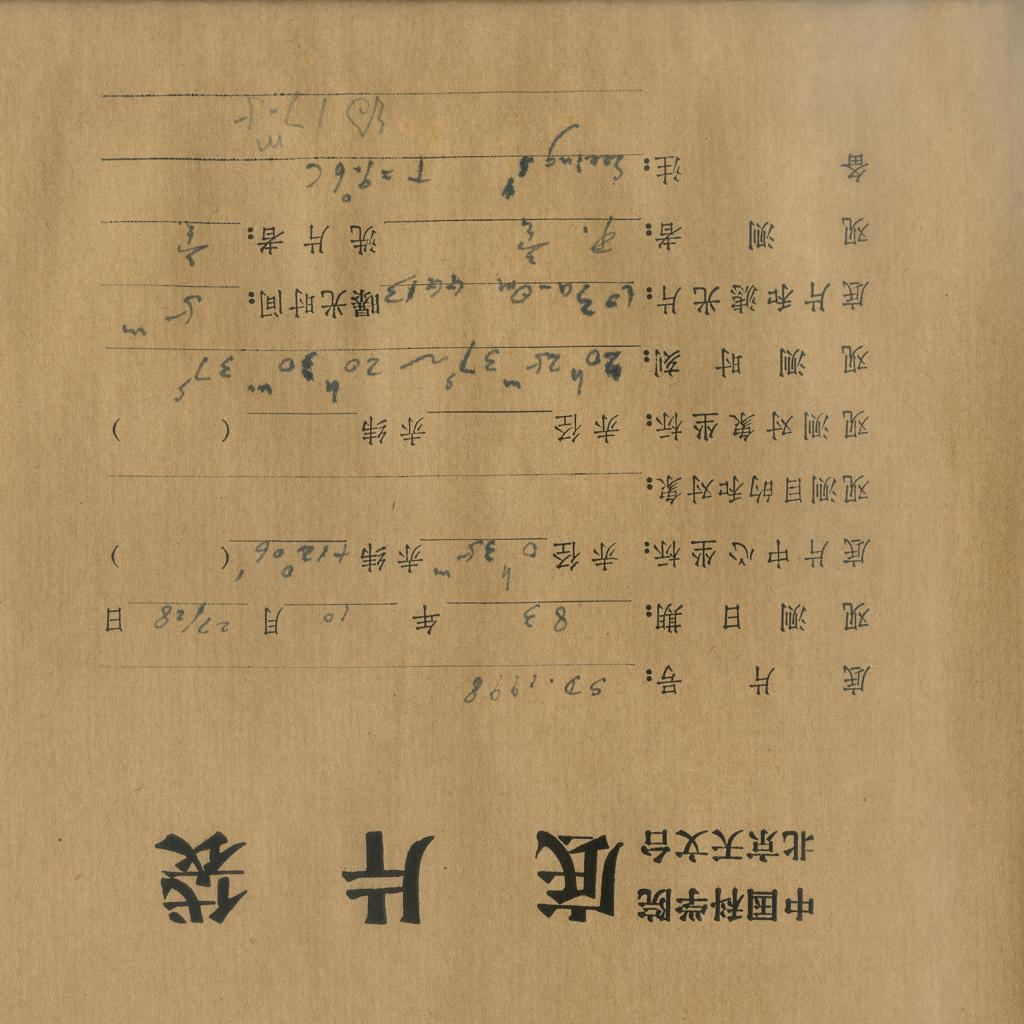 中国科学院
北京天文台 底片袋
底片号: SD.1998
观测日期: 83 年 10 月 27/28 日
底片中心坐标: 赤径 0h 35m 赤纬 +12°06′ ( )
观测目的和对象:
观测对象坐标: 赤径 赤纬 ( )
观测时刻: 20h 25m 37s ~ 20h 30m 37s
底片和滤光片: 103a-O GG13 曝光时间: 5m
观测者: 洗片者:
备注: Seeing T=9.6°C
17.5m